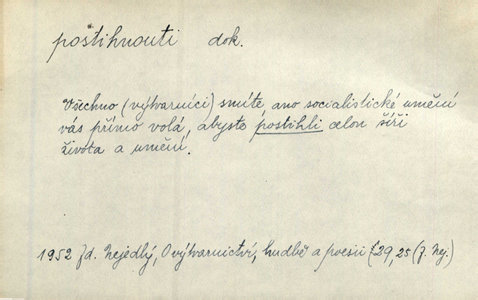 postihnouti dok.
Všechno (výtvarníci) smíte ano socialistické umění
vás přímo volá, abyste postihli celou šíři
života a umění.
1952 Zd. Nejedlý, O výtvarnictví, hudbě a poesii 29, 25 (J. Nej.)